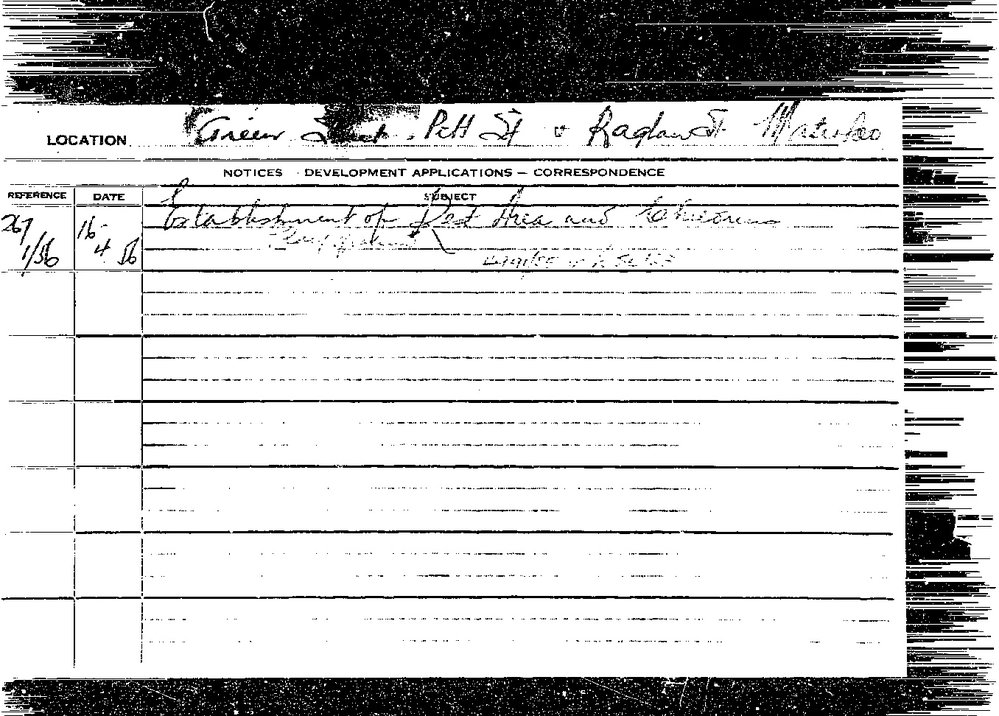 LOCATION Green Street Pitt St & Raglan St Waterloo
NOTICES - DEVELOPMENT APPLICATIONS — CORRESPONDENCE
REFERENCE DATE SUBJECT
267 16- Establishment of Rest Area and Childrens
1/56 4 56 Playground